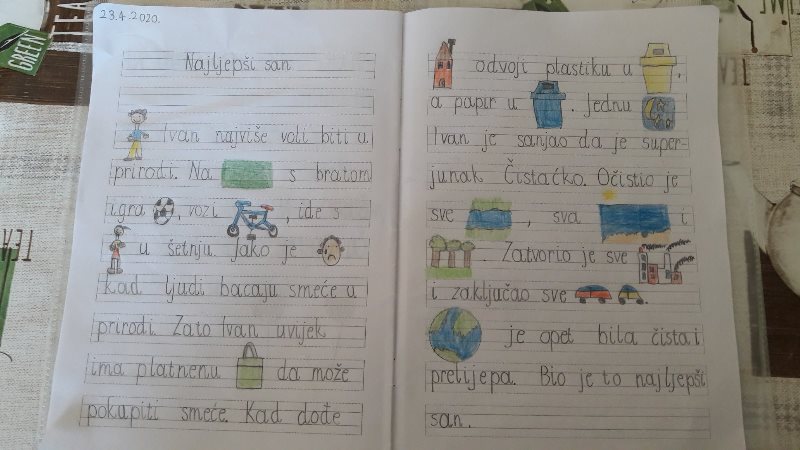 23.4.2020.
Najljepši san
Ivan najviše voli biti u
prirodi. Na s bratom
igra , vozi , ide s
u šetnju. Jako je
kad ljudi bacaju smeće u
prirodi. Zato Ivan uvijek
ima platnenu da može
pokupiti smeće. Kad dođe
odvoji plastiku u ,
a papir u . Jednu
Ivan je sanjao da je super-
junak Čistaćko. Očistio je
sve , sva i
. Zatvorio je sve
i zaključao sve .
je opet bila čista i
prelijepa. Bio je to najljepši
san.
GREEN
TEA
TEA